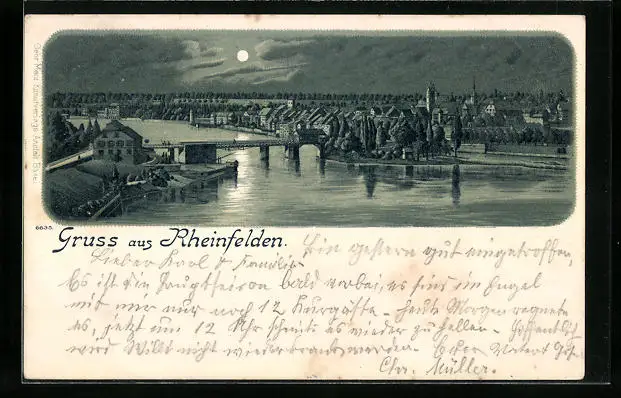 Gebr. Metz Kunstverlags-Anstalt Basel
6635.
Gruss aus Rheinfelden.
Bin gestern gut eingetroffen,
Lieber Karl & Familie
Es ist die Hauptsaison bald vorbei, es sind im Engel
mit mir nur noch 12 Kurgäste - heute Morgen regnete
es, jetzt um 12 Uhr scheint es wieder zu hellen - hoffentlich
wird Willi nicht wieder krank werden - Euer
Chr. Müller.